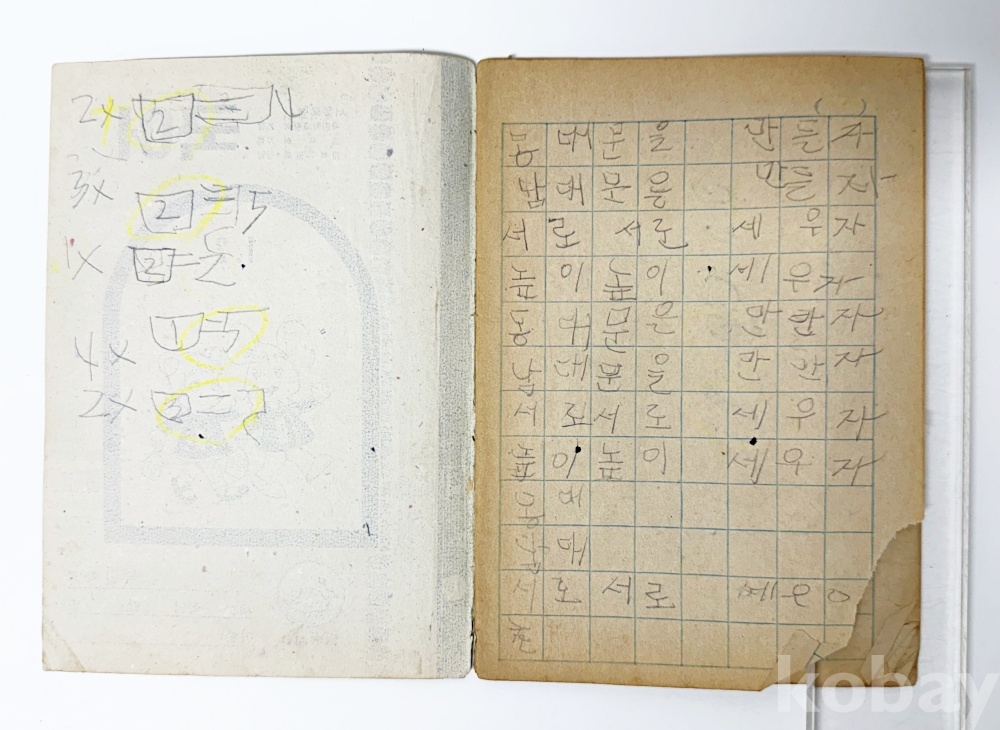 2x 2 = 4
3x 2 = 5
1x 2 = 은!
1 = 5
4x
2x 2 =
( )
동 대 문 을 만 들 자
남 대 문 을 만 들 자
서 로 서 로 세 우 자
높 이 높 이 세 우 자
동 대 문 은 만 만 자
남 데 분 을 만 만 자
서 로 서 로 세 우 자
높 이 높 이 세 우 자
대
남 대
서 로 서 로 세 우 ㅇ
kobay